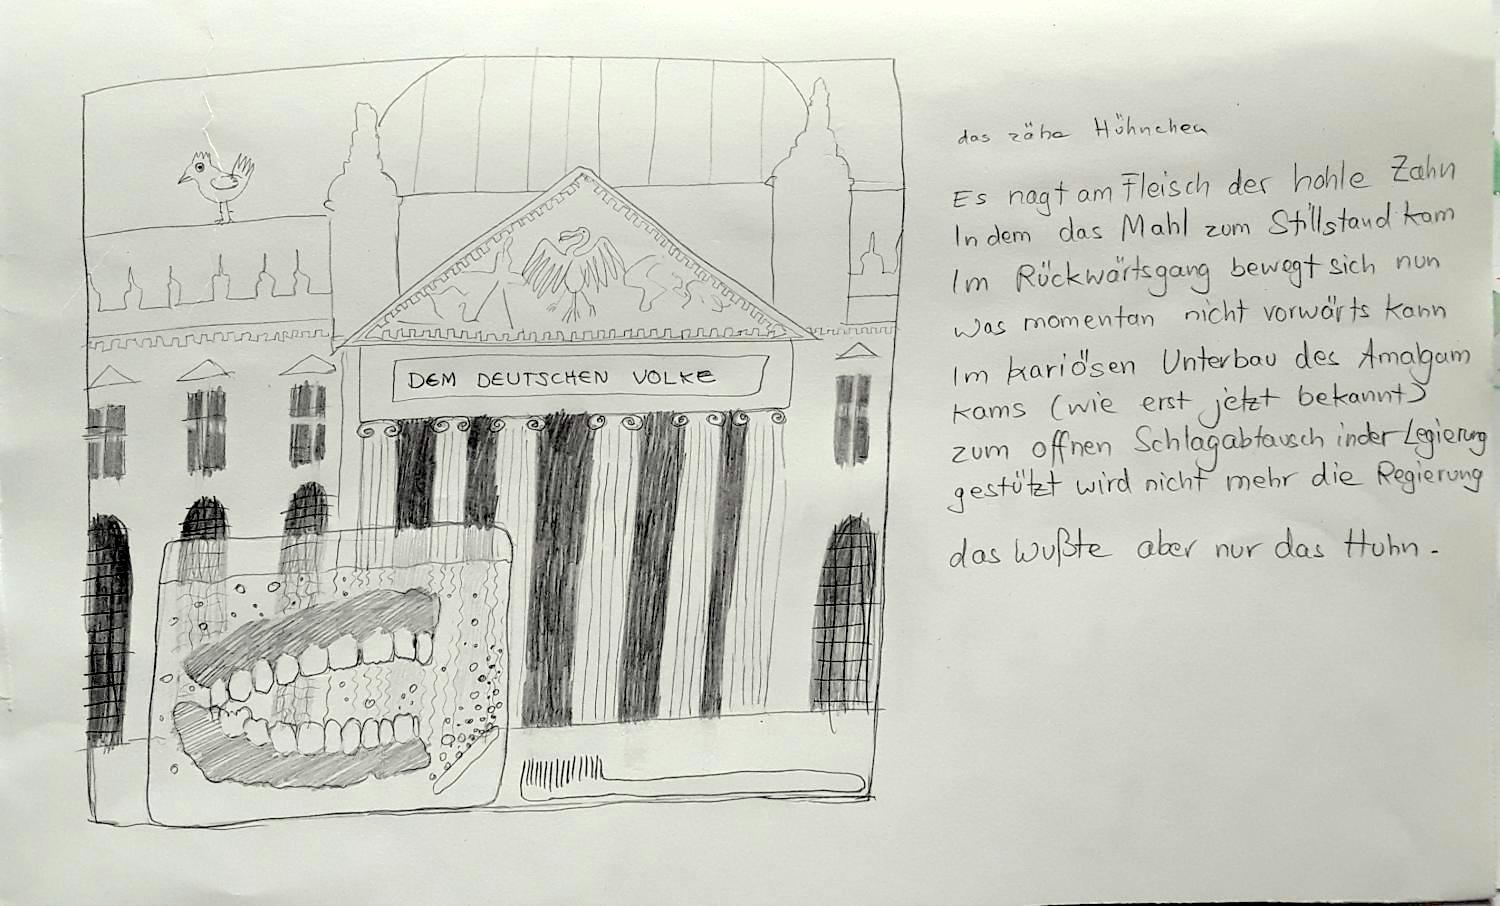 DEM DEUTSCHEN VOLKE
das zähe Hühnchen
Es nagt am Fleisch der hohle Zahn
In dem das Mahl zum Stillstand kam
Im Rückwärtsgang bewegt sich nun
was momentan nicht vorwärts kann
Im kariösen Unterbau des Amalgam
kams (wie erst jetzt bekannt)
zum offnen Schlagabtausch in der Legierung
gestützt wird nicht mehr die Regierung
das wußte aber nur das Huhn.